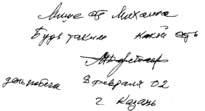 Мише от Михаила
Будь таким какой есть
день победы 2 февраля 02
г Казань